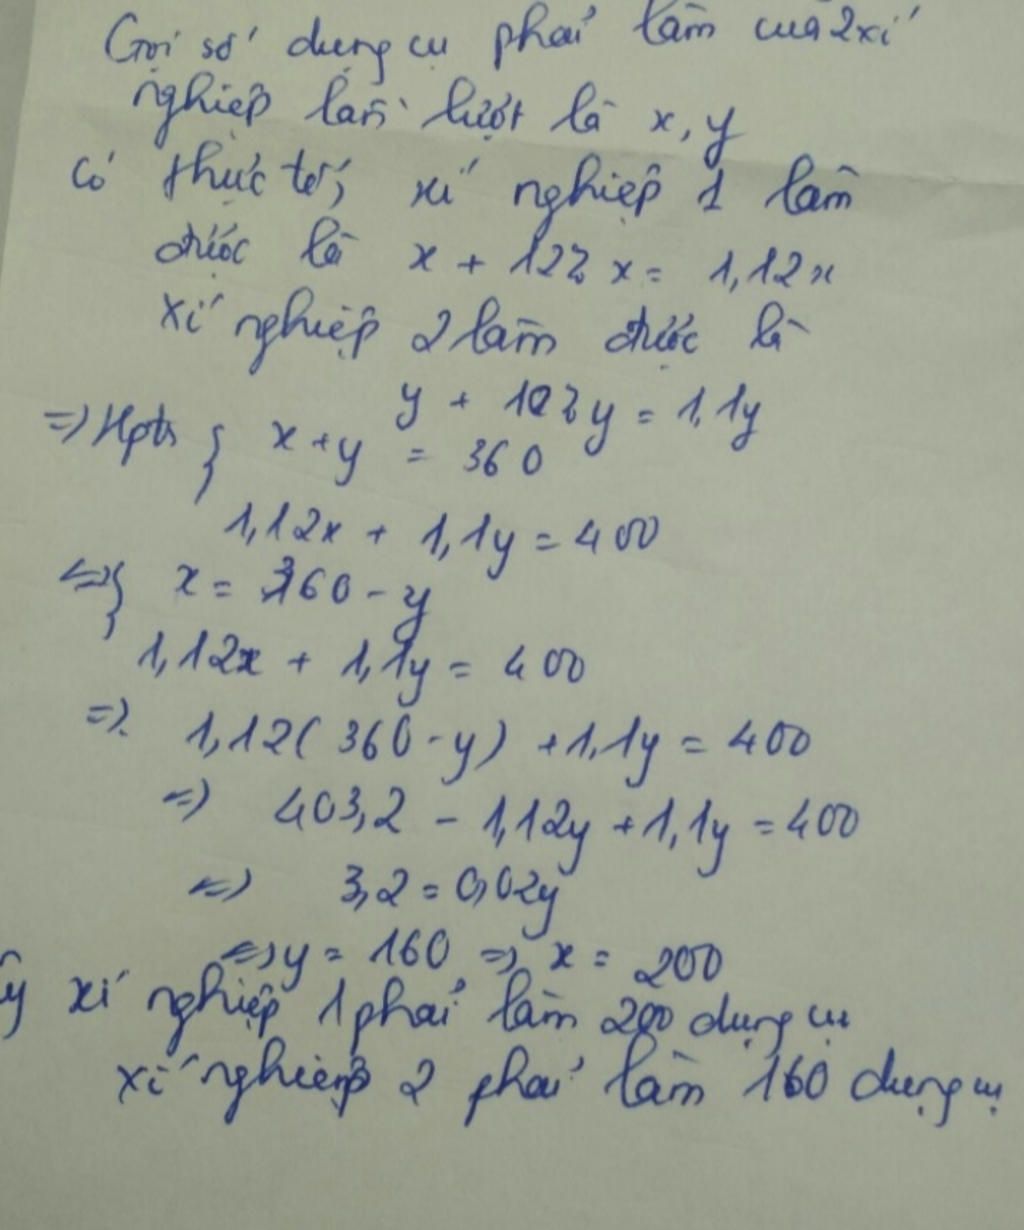 Gọi số dụng cụ phải làm của 2 xí
nghiệp lần lượt là x, y
Có thực tế, xí nghiệp 1 làm
được là x + 12% x = 1,12x
xí nghiệp 2 làm được là
y + 10% y = 1,1y
=> Hpt { x + y = 360
1,12x + 1,1y = 400
<=> { x = 360 - y
1,12x + 1,1y = 400
=> 1,12( 360 - y) + 1,1y = 400
=> 403,2 - 1,12y + 1,1y = 400
<=> 3,2 = 0,02y
<=> y = 160 => x = 200
ậy xí nghiệp 1 phải làm 200 dụng cụ
xí nghiệp 2 phải làm 160 dụng cụ